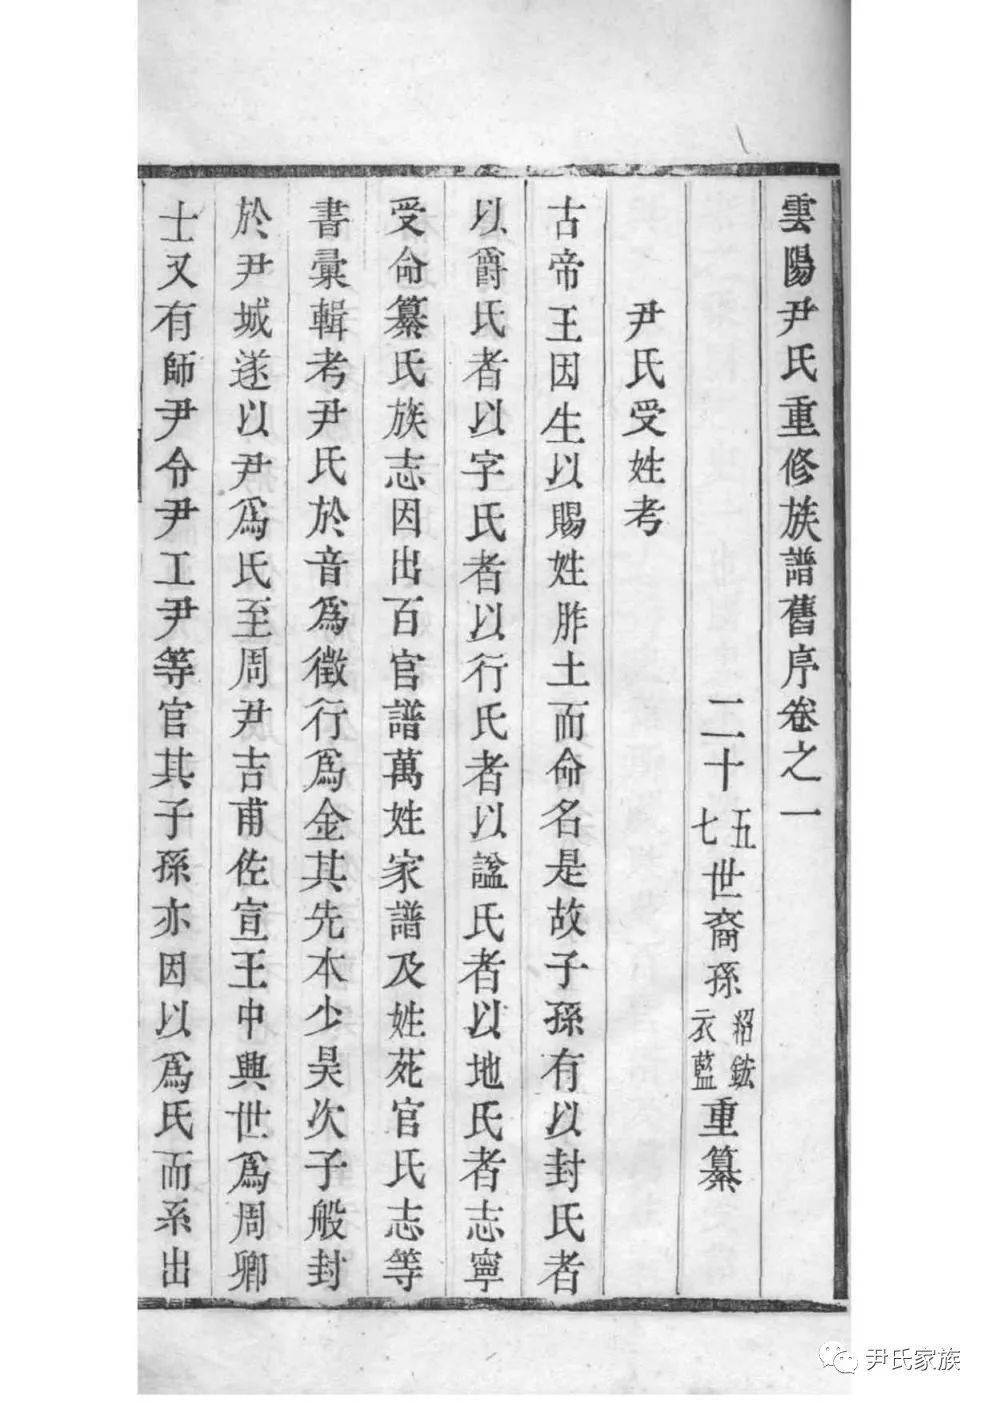 雲陽尹氏重修族譜舊序卷之一
二十五七世裔孫紹鋐衣藍重纂
尹氏受姓考
古帝王因生以賜姓胙土而命名是故子孫有以封氏者
以爵氏者以字氏者以行氏者以諡氏者以地氏者志寧
受命纂氏族志因出百官譜萬姓家譜及姓苑官氏志等
書彙輯考尹氏於音爲徵行爲金其先本少昊次子般封
於尹城遂以尹爲氏至周尹吉甫佐宣王中興世爲周卿
士又有師尹令尹工尹等官其子孫亦因以爲氏而系出
尹氏家族